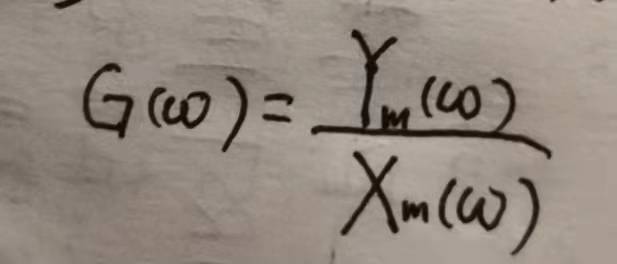 G(ω) = Yₘ(ω) / Xₘ(ω)